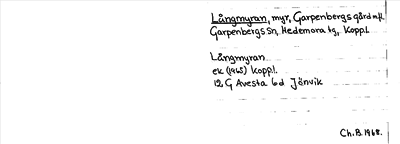 Långmyran, myr, Garpenbergs gård mfl.
Garpenbergs Sn, Hedemora tg, Koppl.
Långmyran
ek (1965) Koppl.
12 G Avesta 6d Jönvik
Ch.B. 1968.